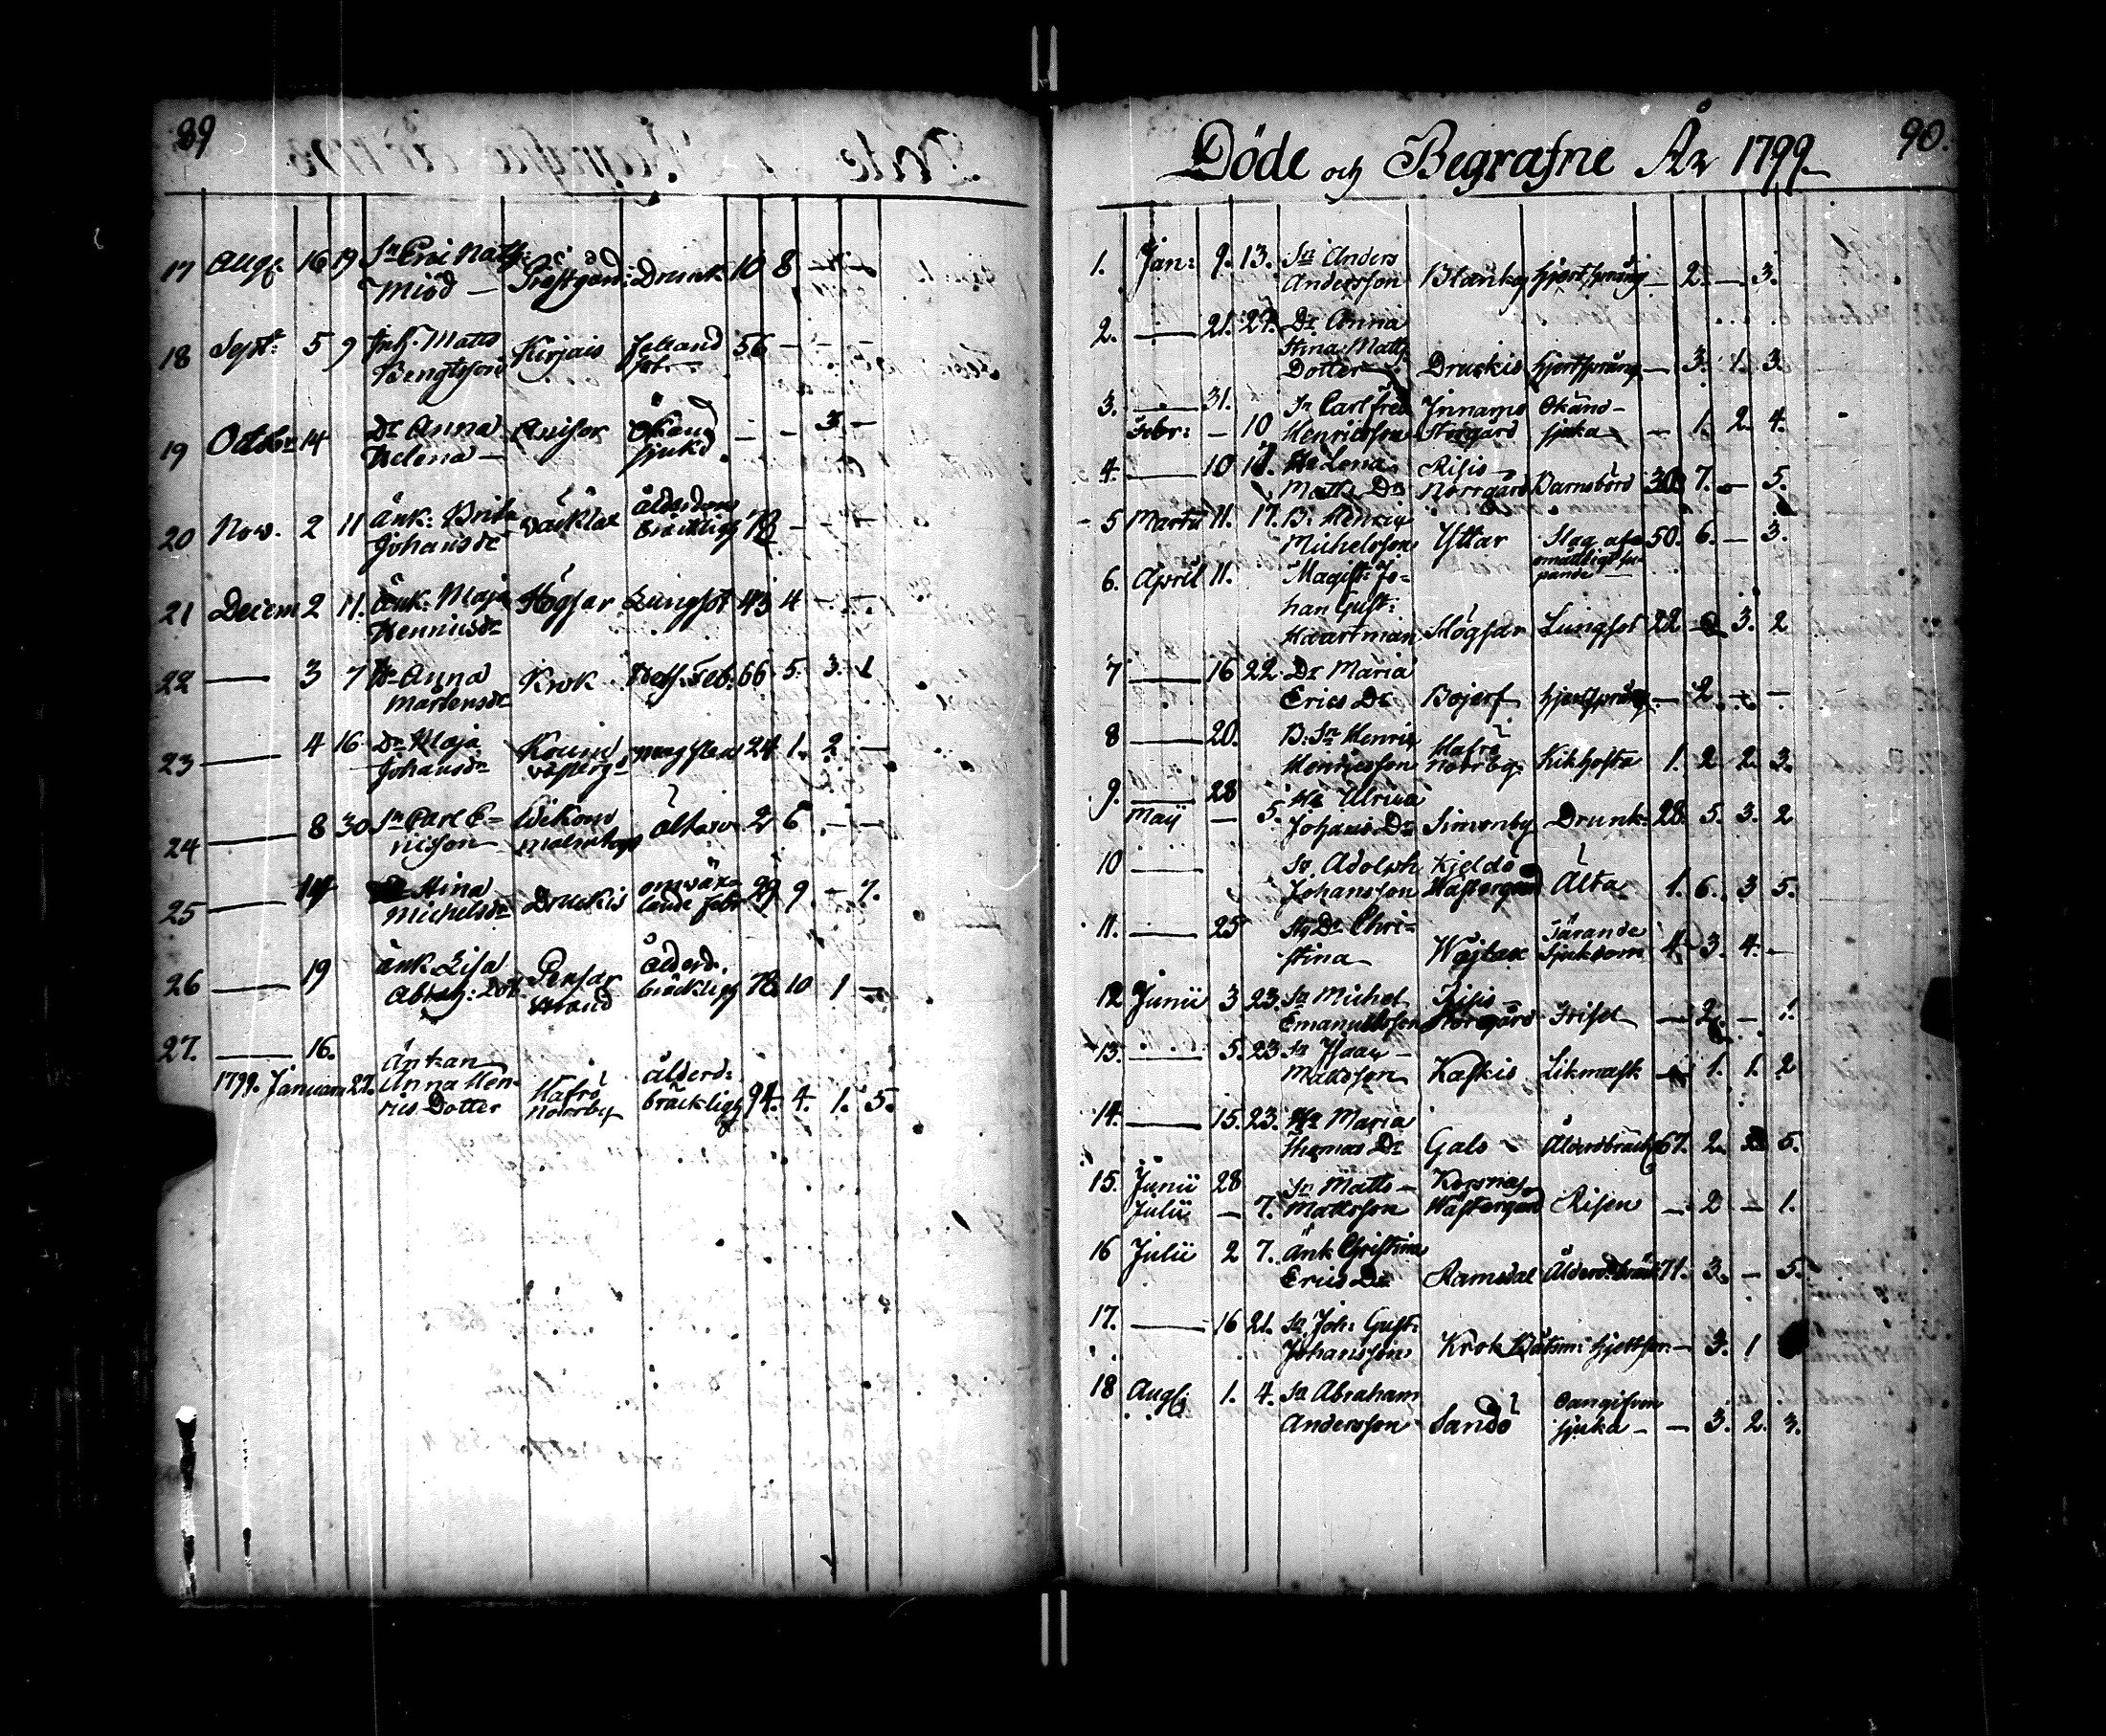 89
17 Aug. 16 19 Sn Eric Math:
Miöd — Prestgård: Drunk: 10 8 — —
18 Sept: 5 9 Inh. Matts
Bengtsson Kirjais 56 — — —
19 Octobr 14 Dr Anna
Helena — Anisor Okänd
sjukd. — — 3 —
20 Nov. 2 11 Änk: Brita
Johansdr ålderdoms
bräckligh — — —
21 Decem 2 11. Änk: Maja
Henricsdr Högsar Lungsot 43 4 — —
22 — 3 7 Hu Anna
Mårtensdr Krok Feb: 66 5. 3. 1
23 — 4 16 Dr Maja
Johansdr 24 1. 2 —
24 — 8 30 Sn Carl E-
ricsson Wikom
Malmen ältan 2 6 — —
25 — 14 Stina
Michelsdr Druckis omväx-
lande febr 29 9. — 7.
26 — 19 Änk Lisa
Abrah: Dotr Pensar
strand ålderd.
bräckligh 78. 10 1 —
27. — 16.
1799. Januari 27. Änkan
Anna Hen-
rics Dotter Hafrö
Norrby ålderd:
bräckligh 94. 4. 1. 5.
90.
Döde och Begrafne År 1799
1. Jan: 9. 13. Sn Anders
Andersson hjertsprång — 2. — 3.
2. — 21. 27. Dr Anna
Stina Matts
Dotter Druckis hjertsprång — 3. 1. 3.
3. — 31. Sn Carl Fred
Febr: — 10 Henricsson Innamo
Storgård Okänd
sjuka — 1. 2. 4.
4. — 10 Hu Lena
Matts Dr Risis
Norrgård Barnsbörd 30 7. — 5.
5 Martii 11. 17. B: Henric
Michelsson Yttar Slag af
omåttligt su-
pande 50. 6. — 3.
6. April 11. Magist: Jo-
han Gust:
Haartman Högsar Lungsot 22 3. 2
7 — 16 22. Dr Maria
Erics Dr Bojers hjertsprång — 2. — —
8 — 20. B: Sn Henric
Henricsson Hafrö
Norrby Kikhosta 1. 2. 2. 3.
9. — 28 Hu Ulrica
Maij — 5. Johans Dr Simonby Drunk: 28. 5. 3. 2
10 — Sn Adolph
Johansson Kjeldö
Wästergård Älta 1. 6. 3 5.
11. — 25 Dr Chri-
stina Wäjlax Tärande
Sjukdom 4. 3. 4. —
12 Junii 3 23. Sn Michel
Emanuelsson Risis
Storgård Trisel — 2. — 1.
13. — 5. 23 Sn Isaac
Mattsson Kaskis Likmask — 1. 1. 2
14. — 15. 23. Hu Maria
Thomas Dr Gals Ålderdbräckl 67. 2. 5.
15. Junii 28 Sn Matts
Julii — 7. Mattsson Korsnäs
Wästergård Risen — 2 — 1.
16 Julii 2 7. Änk Christina
Erics Dr Ramsdal Ålderd.bräck 71. 3. — 5.
17. — 16 21. Sn Joh: Gust:
Johansson Krok Båtsm: hjertspr: — 3. 1
18 Aug. 1. 4. Sn Abraham
Andersson Sandö Oangifven
sjuka — — 3. 2. 3.